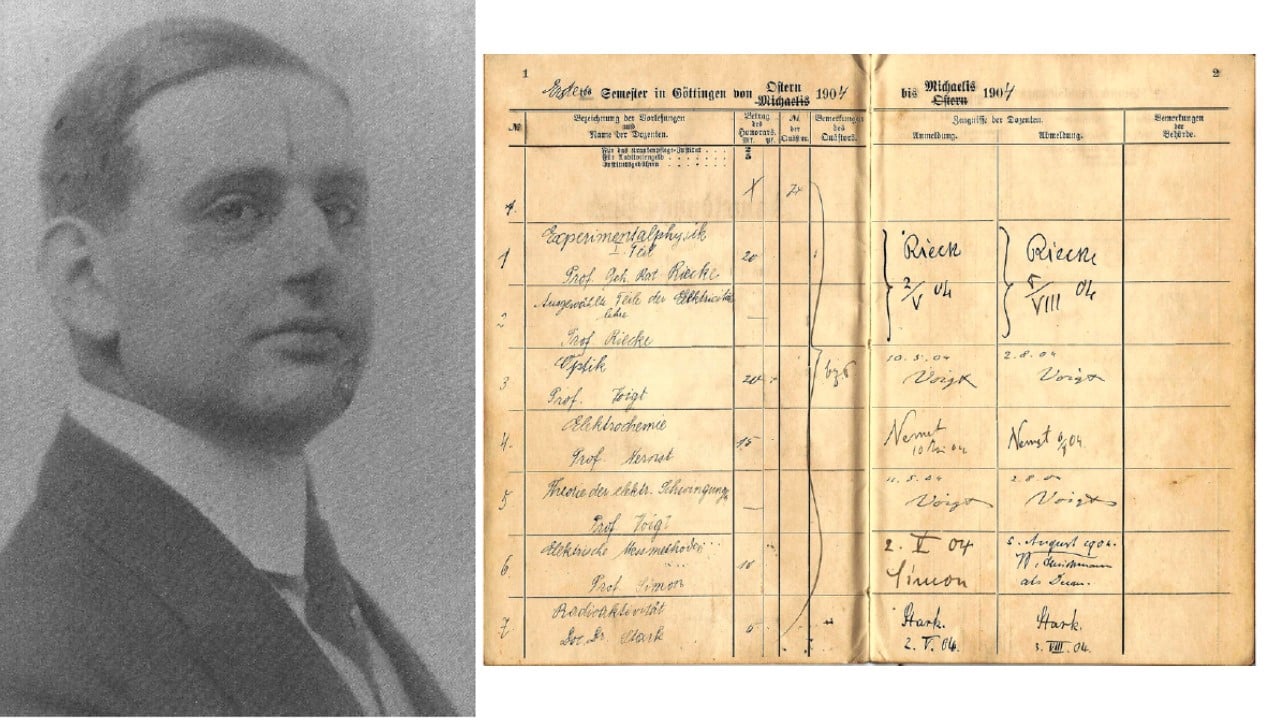 1
Erstes Semester in Göttingen von Ostern Michaelis 1904
№
Bezeichnung der Vorlesungen
und
Name der Dozenten.
Betrag
des
Honorars.
Mk. Pf.
№
der
Quästur.
Bemerkungen
des
Quästors.
Für das Krankenpflege-Institut . . .
Für Auditoriengeld . . . . . .
Institutsgebühren . . . . . .
1
Experimentalphysik
I. Teil
Prof. Geh. Rat. Riecke
20
2
Ausgewählte Teile der Elektricitäts
lehre
Prof Riecke
3
Optik
Prof. Voigt
20
4.
Elektrochemie
Prof. Nernst
15
5
Theorie der elektr. Schwingung
Prof Voigt
6.
Elektrische Messmethoden
Prof. Simon
10
7
Radioaktivität
Doc. Dr. Stark
5
2
bis Michaelis Ostern 1904
Zeugnisse der Dozenten.
Anmeldung.
Abmeldung.
Bemerkungen
der
Behörde.
Riecke
2/V 04
Riecke
5/VIII 04
10.5.04
Voigt
2.8.04
Voigt
Nernst
10 Mai 04
Nernst 04
11.5.04
Voigt
2.8.04
Voigt
2. V 04
Simon
5. August 1904.
als Decan.
Stark.
2. V. 04.
Stark.
3. VIII. 04.